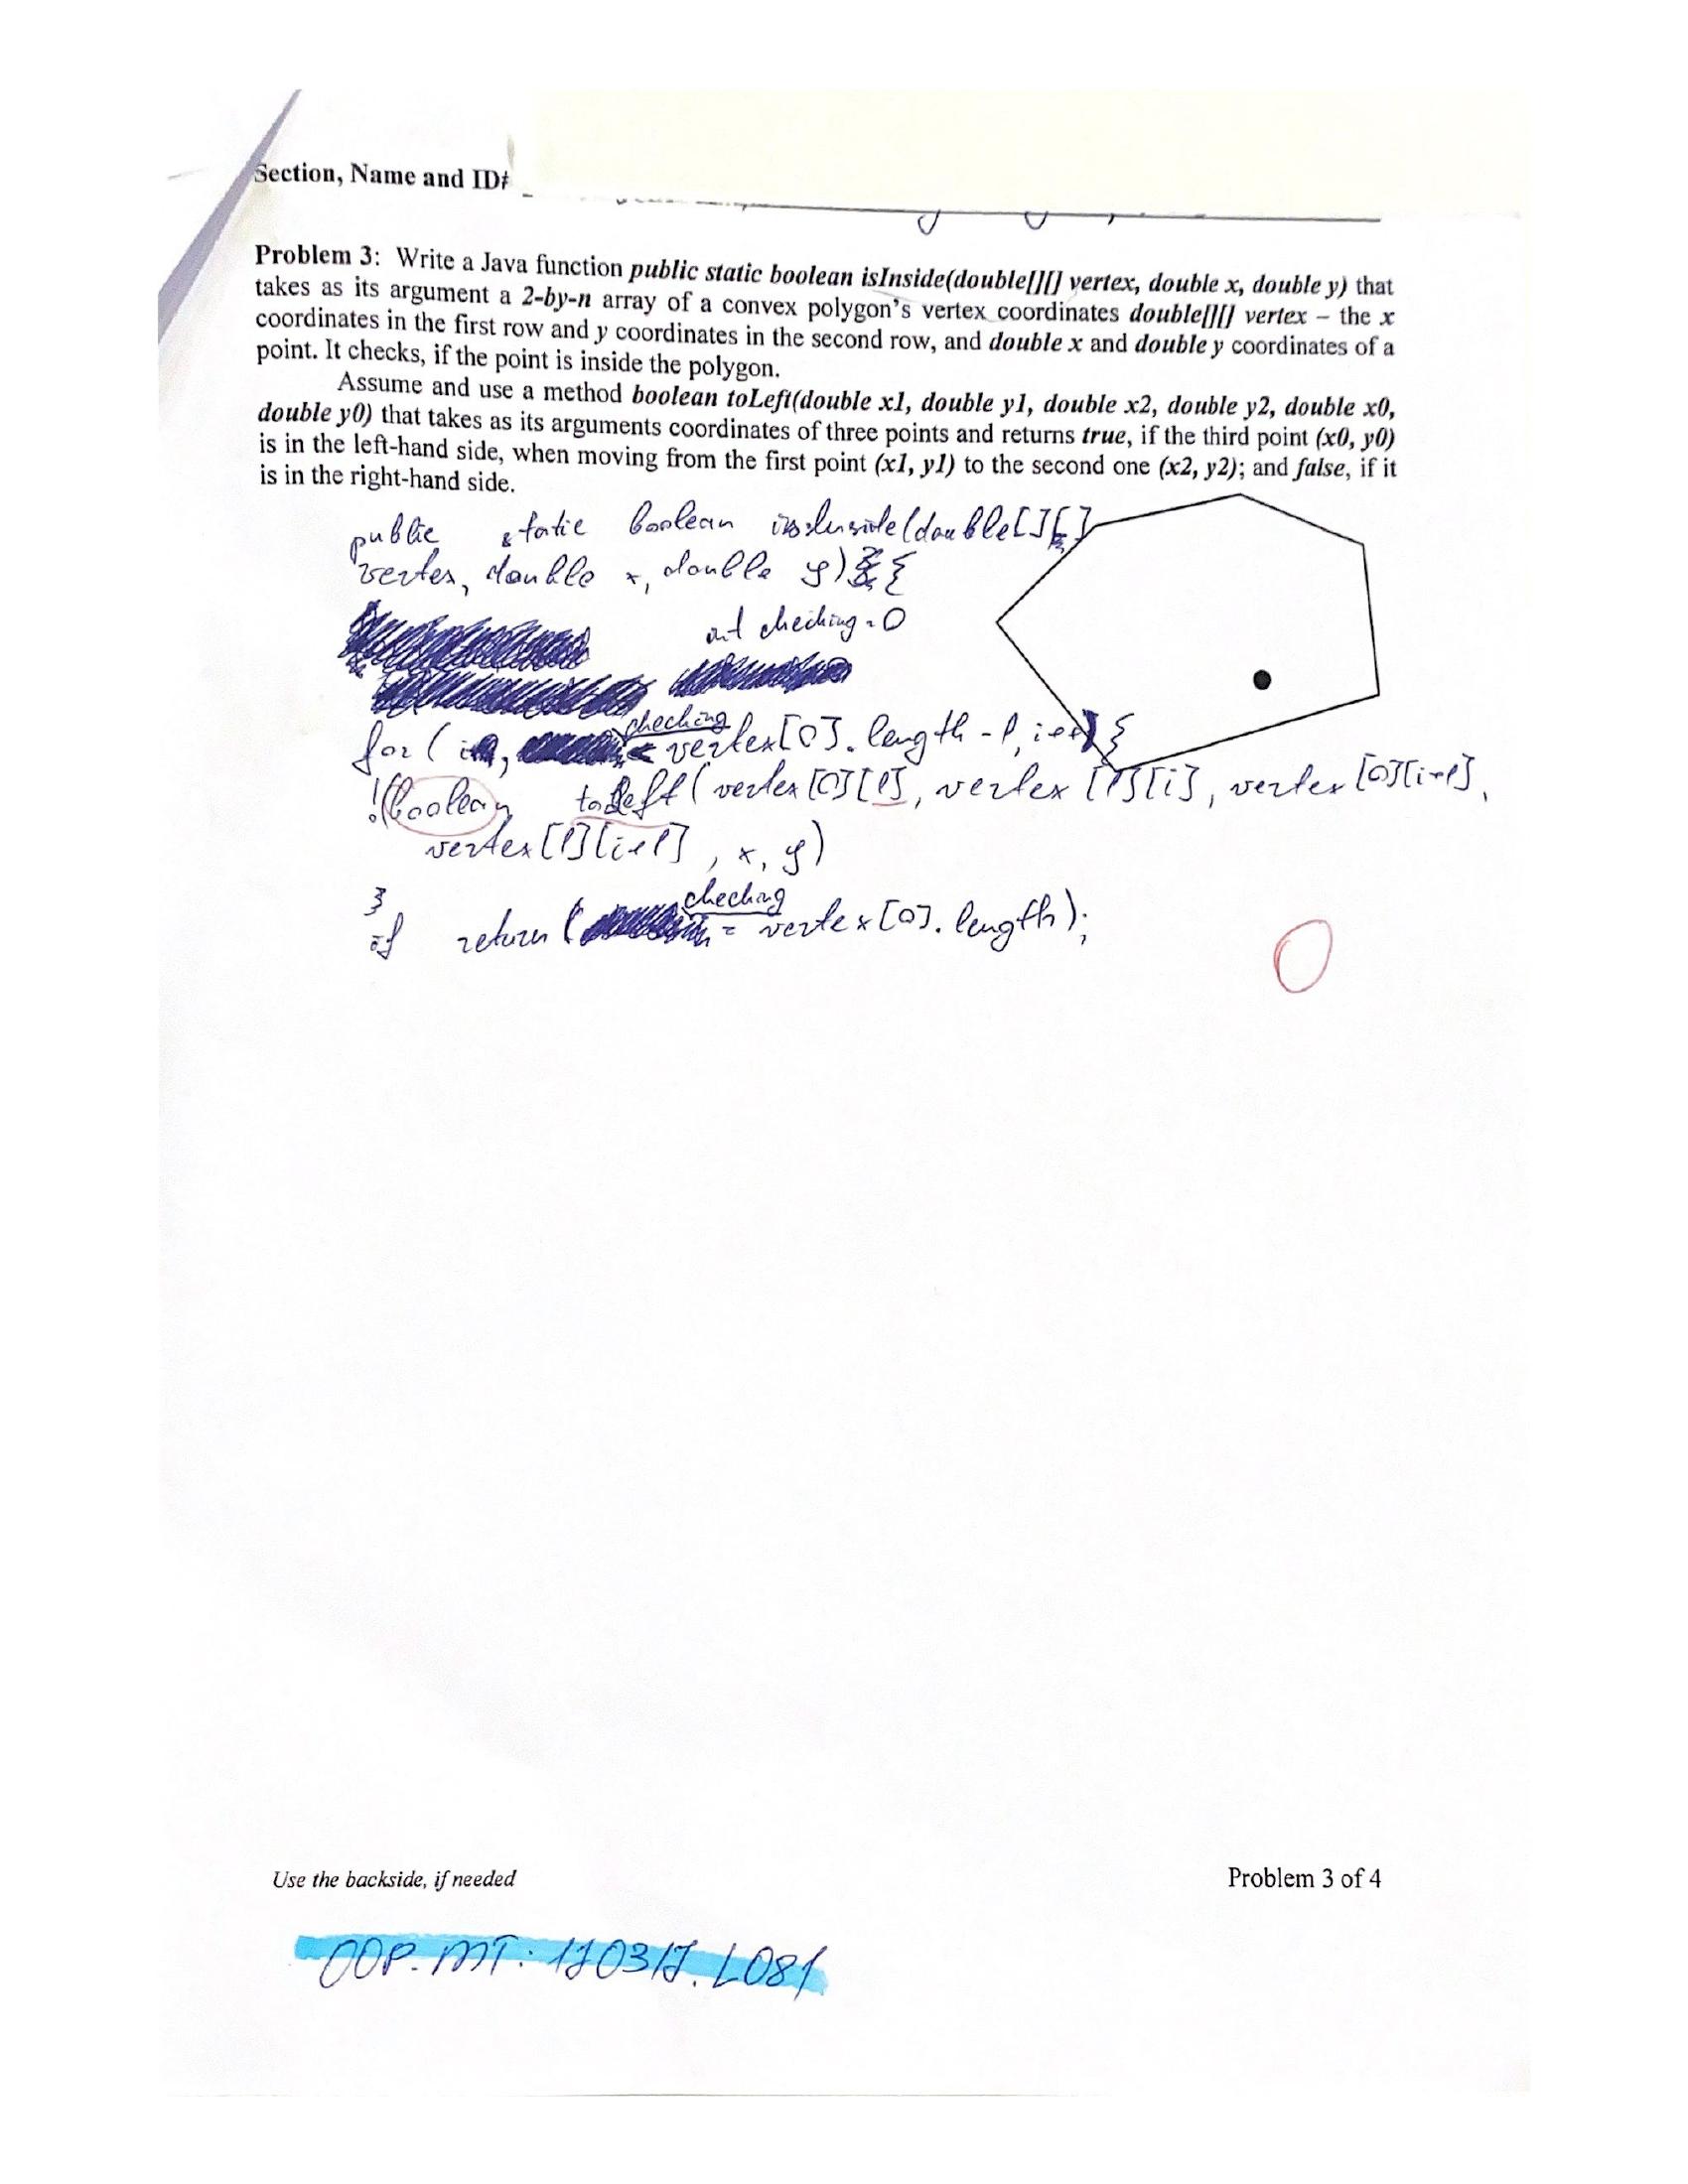 Section, Name and ID#
Problem 3: Write a Java function public static boolean isInside(double[][] vertex, double x, double y) that
takes as its argument a 2-by-n array of a convex polygon's vertex coordinates double[][] vertex – the x
coordinates in the first row and y coordinates in the second row, and double x and double y coordinates of a
point. It checks, if the point is inside the polygon.
Assume and use a method boolean toLeft(double x1, double y1, double x2, double y2, double x0,
double y0) that takes as its arguments coordinates of three points and returns true, if the third point (x0, y0)
is in the left-hand side, when moving from the first point (x1, y1) to the second one (x2, y2); and false, if it
is in the right-hand side.
public static boolean (double[][]
vertex, double x, double y) {
int checking = 0
for ( checking < vertex[0].length - 1, i++) {
!(boolean toLeft( vertex [0][1], vertex [1][i], vertex [0][i+1],
vertex [1][i+1] , x, y)
}
if return ( checking = vertex [0]. length);
0
Use the backside, if needed
Problem 3 of 4
OOP. MT: 170317. L081